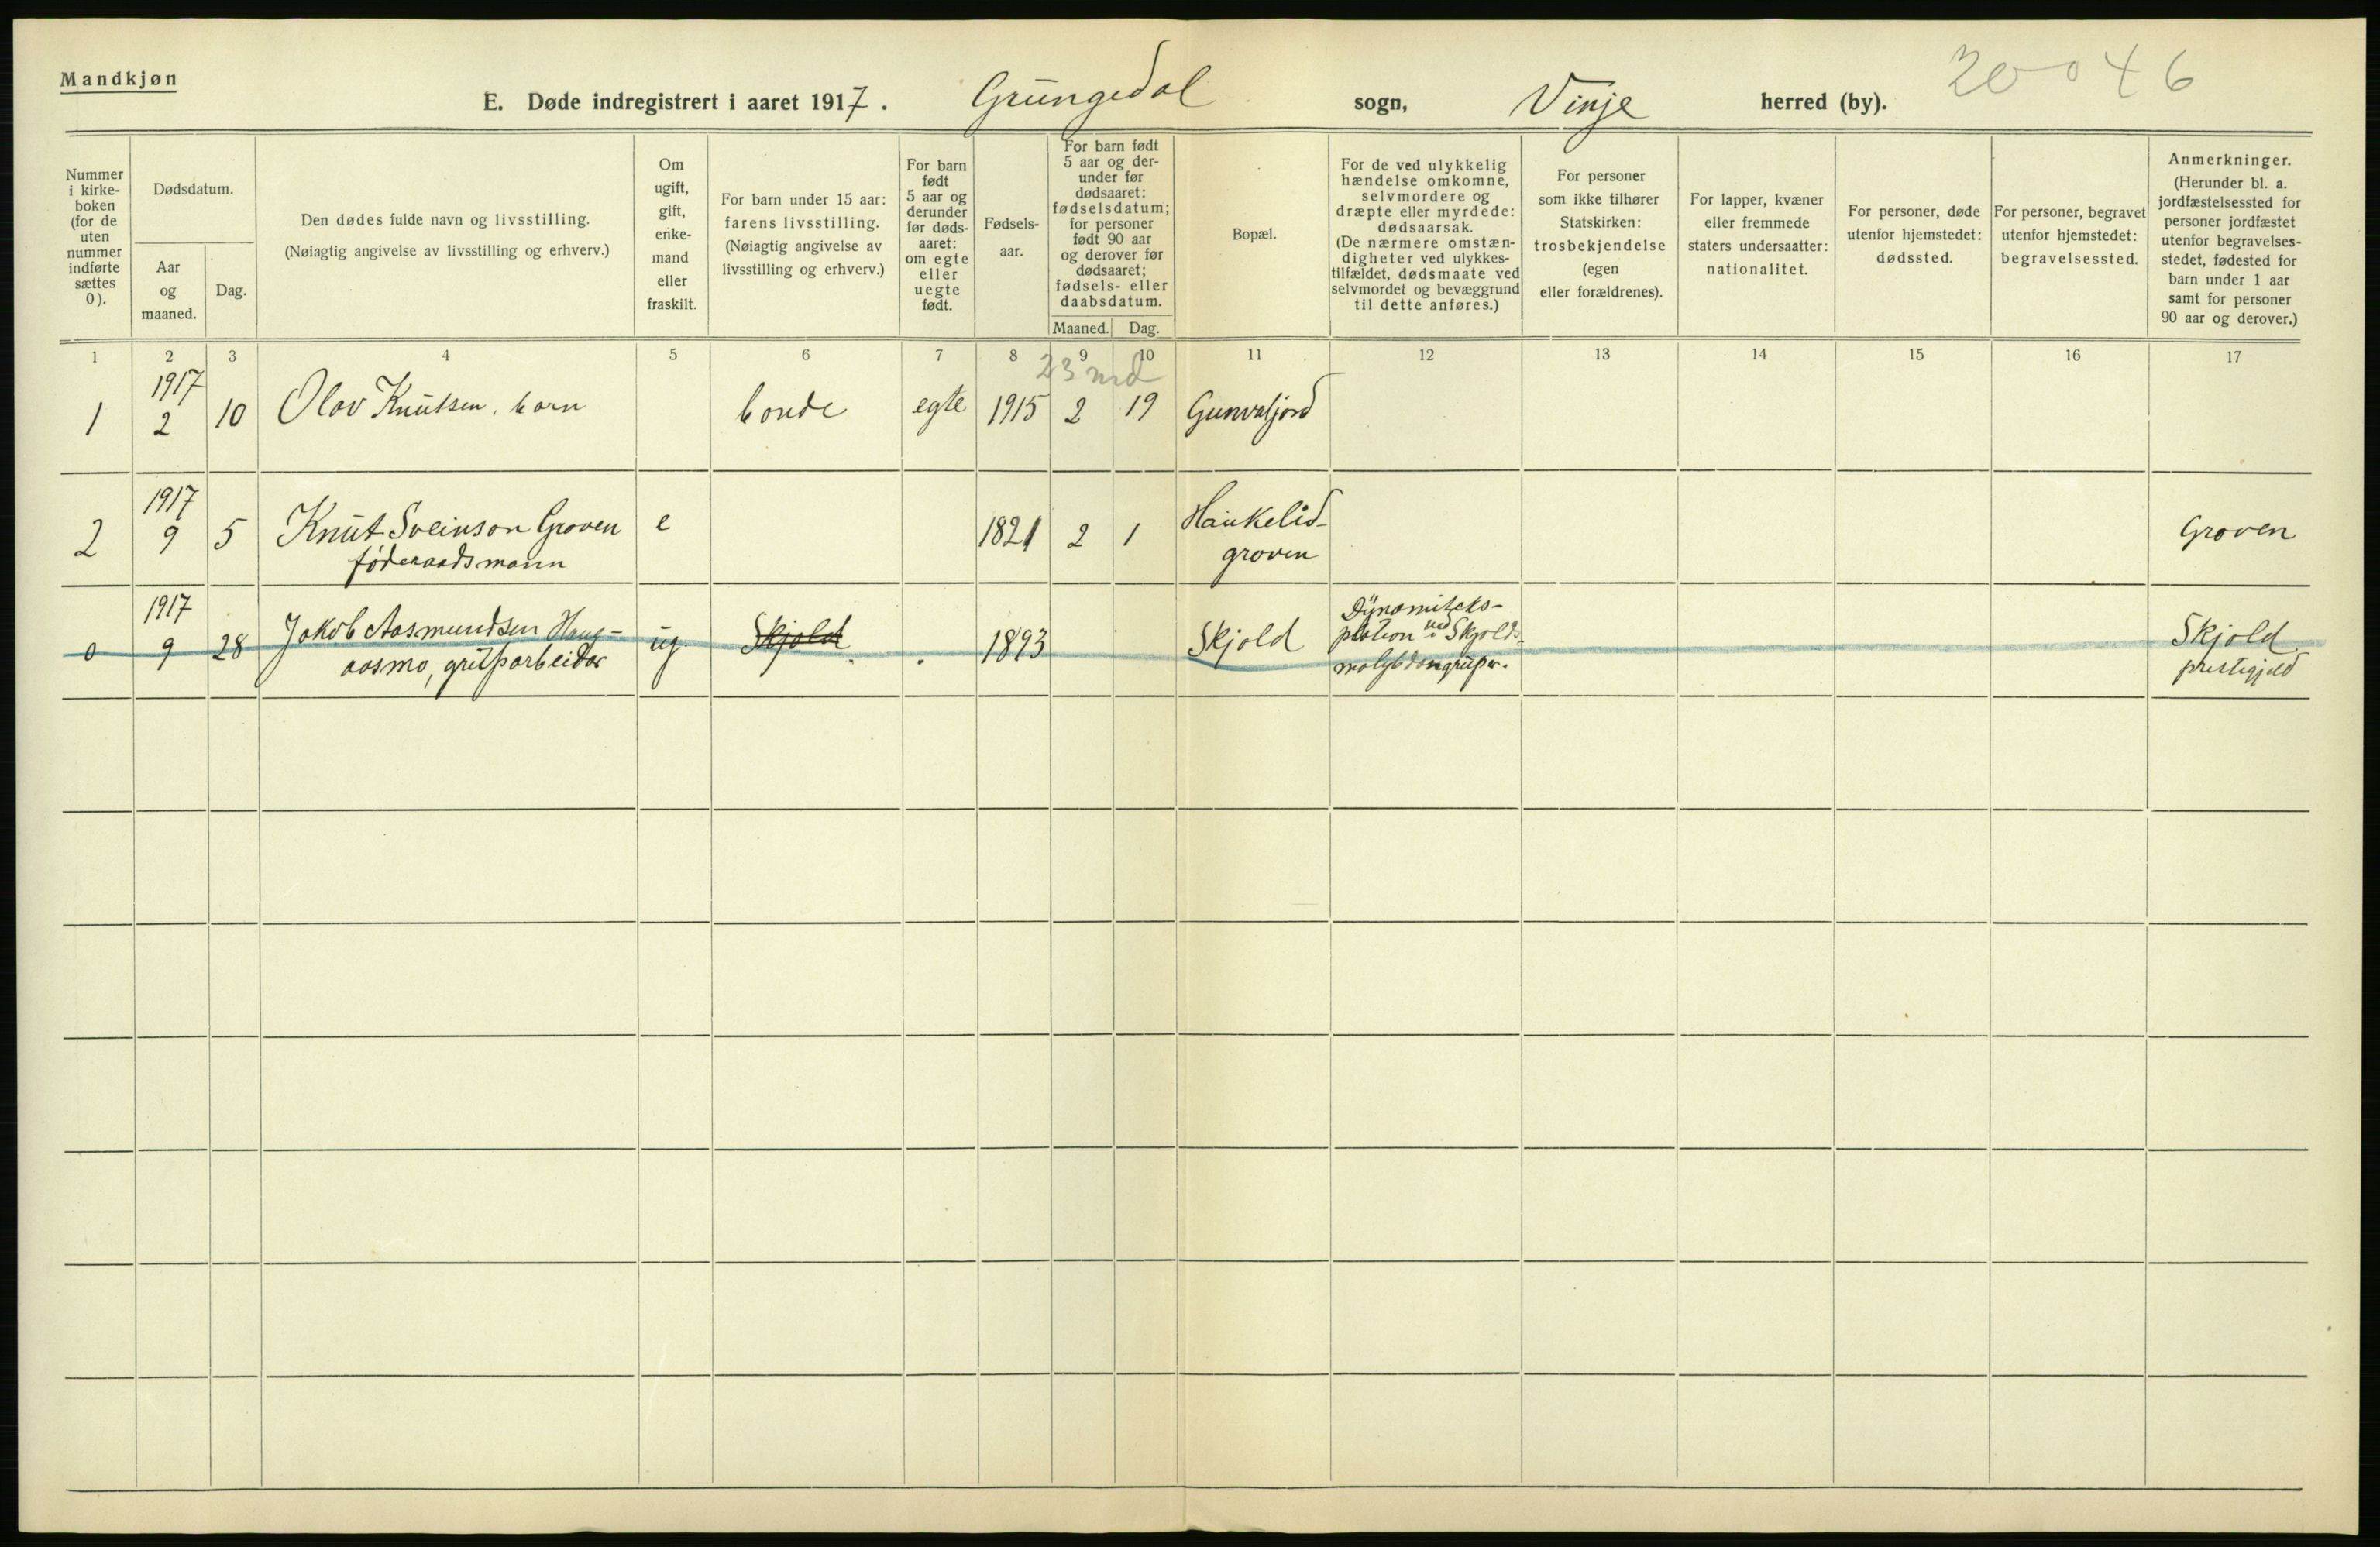 Mandkjøn
E. Døde indregistrert i aaret 1917. Grungedal sogn, Vinje herred (by).
20046
Nummer
i kirke-
boken
(for de
uten
nummer
indførte
sættes
0).
Dødsdatum.
Aar
og
maaned.
Dag.
Den dødes fulde navn og livsstilling.
(Nøiagtig angivelse av livsstilling og erhverv.)
Om
ugift,
gift,
enke-
mand
eller
fraskilt.
For barn under 15 aar:
farens livsstilling.
(Nøiagtig angivelse av
livsstilling og erhverv.)
For barn
født
5 aar og
derunder
før døds-
aaret:
om egte
eller
uegte
født.
Fødsels-
aar.
For barn født
5 aar og der-
under før
dødsaaret:
fødselsdatum;
for personer
født 90 aar
og derover før
dødsaaret;
fødsels- eller
daabsdatum.
Maaned. Dag.
Bopæl.
For de ved ulykkelig
hændelse omkomne,
selvmordere og
dræpte eller myrdede:
dødsaarsak.
(De nærmere omstæn-
digheter ved ulykkes-
tilfældet, dødsmaate ved
selvmordet og bevæggrund
til dette anføres.)
For personer
som ikke tilhører
Statskirken:
trosbekjendelse
(egen
eller forældrenes).
For lapper, kvæner
eller fremmede
staters undersaatter:
nationalitet.
For personer, døde
utenfor hjemstedet:
dødssted.
For personer, begravet
utenfor hjemstedet:
begravelsessted.
Anmerkninger.
(Herunder bl. a.
jordfæstelsessted for
personer jordfæstet
utenfor begravelses-
stedet, fødested for
barn under 1 aar
samt for personer
90 aar og derover.)
1 2 3 4 5 6 7 8 9 10 11 12 13 14 15 16 17
23 md
1917
1 2 10 Olav Knutsen, barn bonde egte 1915 2 19 Gunvaljord
1917
2 9 5 Knut Sveinson Groven e 1821 2 1 Haukelid- Groven
føderaadsmann groven
1917
0 9 28 Jakob Aasmundsen Haug- ug. Skjold 1893 Skjold
aasmo, gruparbeidar
Dynamiteks-
plotion ved i Skjolds-
molybdængrupr.
Skjold
prestegjeld